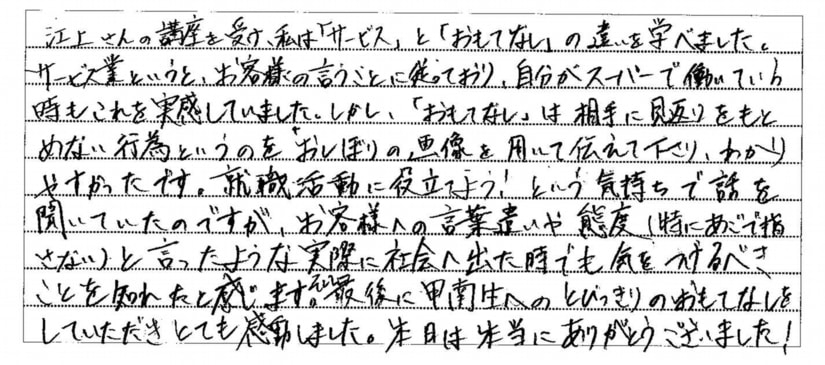 江上さんの講座を受け、私は「サービス」と「おもてなし」の違いを学べました。
サービス業というと、お客様の言うことに従っており、自分がスーパーで働いている
時もこれを実感していました。しかし、「おもてなし」は相手に見返りをもと
めない行為というのを、おしぼりの画像を用いて伝えて下さり、わかり
やすかったです。就職活動に役立てよう！という気持ちで話を
聞いていたのですが、お客様への言葉遣いや態度(特にあごで指
さない)と言ったような実際に社会へ出た時でも気をつけるべき
ことを知れたと感じます。最後に甲南生へのとびっきりのおもてなしを
していただきとても感動しました。本日は本当にありがとうございました！